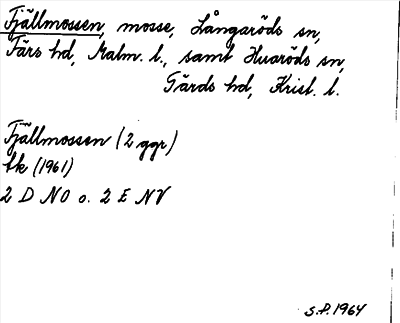 Fjällmossen, mosse, Långaröds sn,
Färs hd, Malm. l., samt Huaröds sn,
Gärds hd, Krist. l.
Fjällmossen (2 ggr)
Ek (1961)
2 D NO o. 2 E NV
S.P. 1964